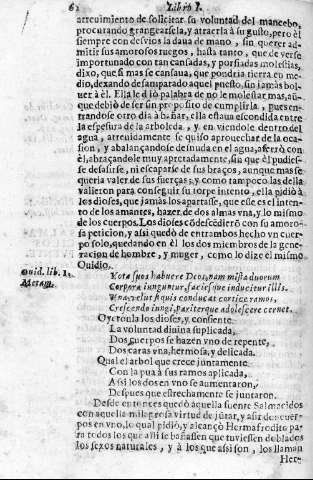 62 Libro I.
atreuimiento de solicitar su voluntad del mancebo,
procurando grangearsela, y atraerla à su gusto, pero èl
siempre con desuios la daua de mano, sin querer ad-
mitir sus amorosos ruegos, hasta tanto, que de verse
importunado con tan cansadas, y porfiadas molestias,
dixo, que si mas se cansaua, que pondria tierra en me-
dio, dexando desamparado aquel puesto, sin jamàs bol-
uer à èl. Ella le diò palabra de no le molestar mas, aũ-
que debiò de ser sin proposito de cumplirla, pues en-
trandose otro dia à bañar, ella estaua escondida entre
la espesura de la arboleda, y en viendole dentro del
agua, atreuidamente se quiso aprouechar de la oca-
sion, y abalançandose de linda en el agua, aferrò con
èl, abraçandole muy apretadamente, sin que èl pudies-
se desasirse, ni escaparse de sus braços, aunque mas se
queria valer de sus fuerças; y como tampoco las della
valieron para conseguir su torpe intento, ella pidiò à
los dioses, que jamàs los apartasse, que esse es el inten-
to de los amantes, hazer de dos almas vna, y lo mismo
de los cuerpos. Los dioses cõdescẽdierõ con su amoro-
sa peticion, y assi quedò de entrambos hecho vn cuer-
po solo, quedando en èl los dos miembros de la gene-
racion de hombre, y muger, como lo dize el mismo
Ouidio.
Ouid. lib. 1.
Metam.
Vota suos habuere Deos, nam mista duorum
Corpora iunguntur, facies que inducitur illis.
Vna, velut si quis conducat cortice ramos,
Crescendo iungi, pariterque adolescere cernet.
Oyeronla los dioses, y consiente
La voluntad diuina suplicada,
Dos cuerpos se hazen vno de repente,
Dos caras vna, hermosa, y delicada.
Qual el arbol que crece juntamente
Con la pua à sus ramos aplicada,
Assi los dos en vno se aumentaron,
Despues que estrechamente se juntaron.
Desde entonces quedò aquella fuente Salmacidos
con aquella milagrosa virtud de jũtar, y asir dos cuer-
pos en vno, lo qual pidiò, y alcançò Hermafrodito pa-
ra todos los que alli se bañassen que tuuiessen doblados
los sexos naturales, y à los que assi son, los llaman
Her-